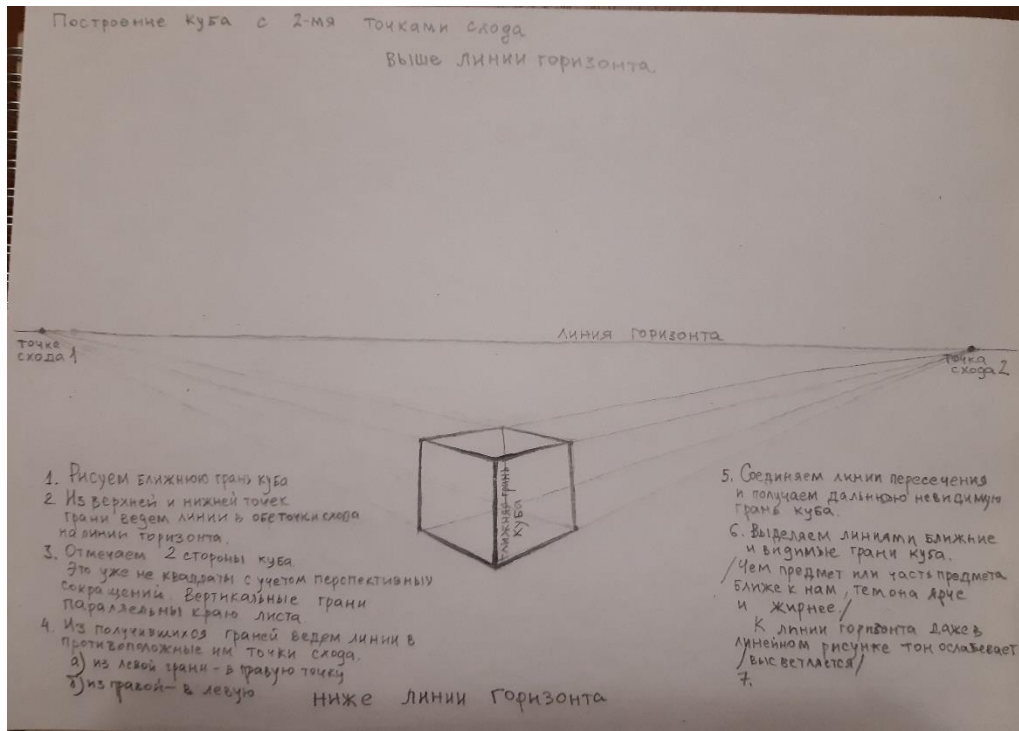 Построение куба с 2-мя точками схода
выше линии горизонта
линия горизонта
точка
схода 1
точка
схода 2
ближняя грань
куба
1. Рисуем ближнюю грань куба
2. Из верхней и нижней точек
грани ведем линии в обе точки схода
на линии горизонта.
3. Отмечаем 2 стороны куба.
Это уже не квадраты с учетом перспективных
сокращений. Вертикальные грани
параллельны краю листа.
4. Из получившихся граней ведем линии в
противоположные им точки схода.
а) из левой грани - в правую точку
б) из правой - в левую
5. Соединяем линии пересечения
и получаем дальнюю невидимую
грань куба.
6. Выделяем линиями ближние
и видимые грани куба.
/Чем предмет или часть предмета
ближе к нам, тем она ярче
и жирнее./
К линии горизонта даже в
линейном рисунке тон ослабевает
/высветляется/
7.
ниже линии горизонта